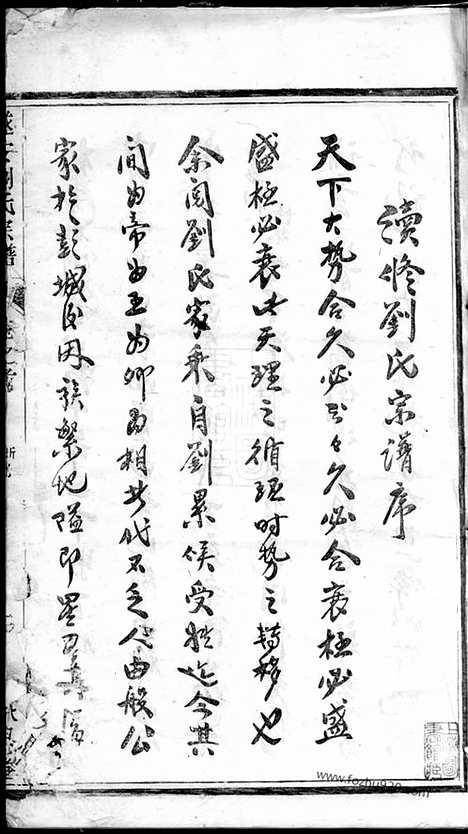 續修劉氏宗譜序
天下大勢合久必分分久必合衰極必盛
盛極必衰此天理之循環時勢之轉移也
余閱劉氏家乘自劉累候受姓迄今其
間為帝為王為卿為相其代不乏人由般公
家於彭城後因族繁地隘即星
www.fozhu920.com